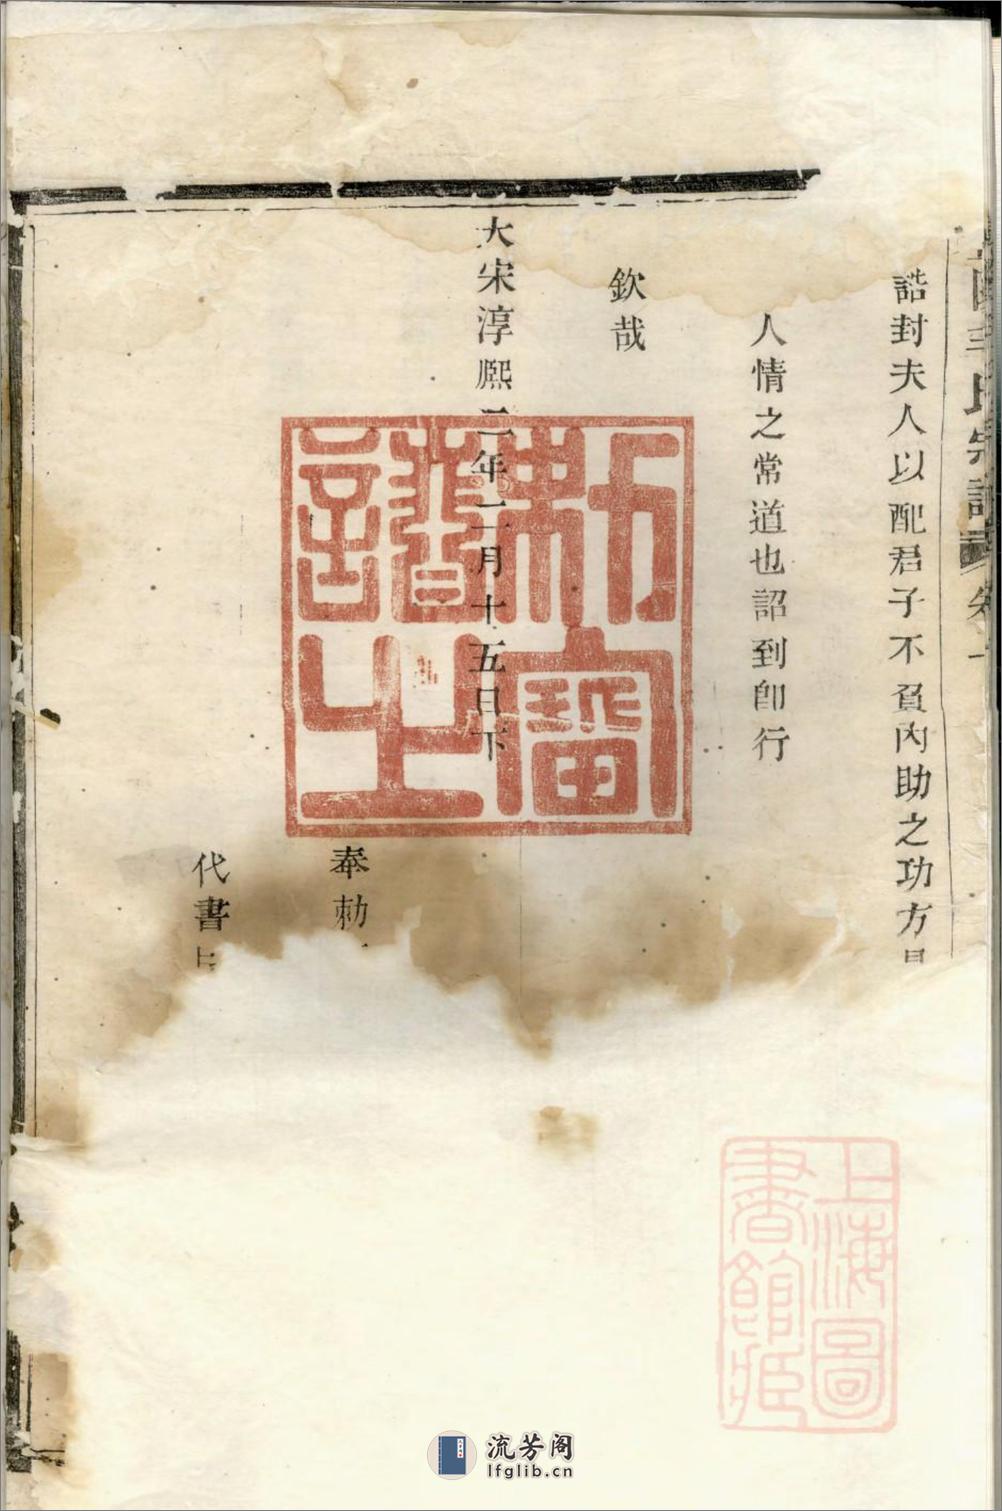 氏宗譜
卷一
誥封夫人以配君子不負內助之功方
人情之常道也詔到卽行
欽哉
大宋淳熙二年二月十五日下
奉勅
代書
上海圖書館藏
流芳阁
lfglib.cn